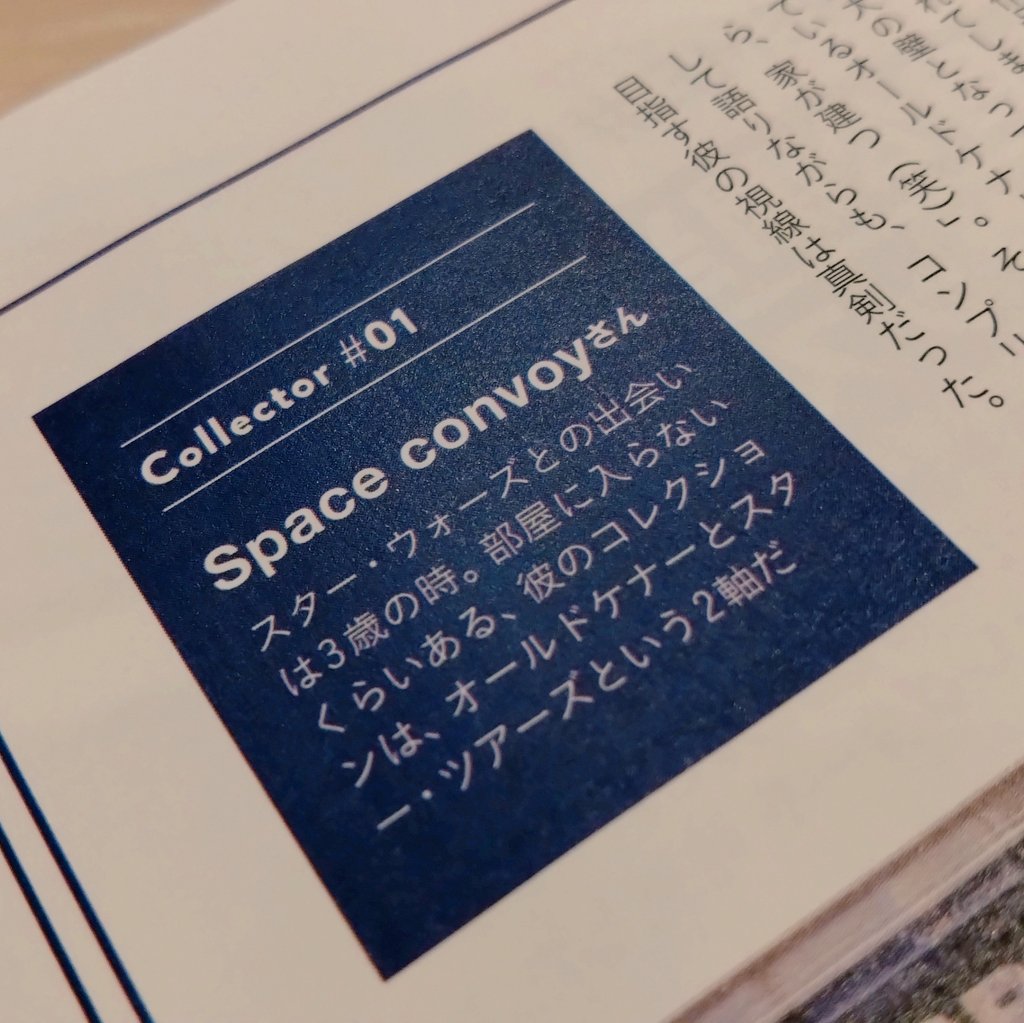 れてしま
大の壁となっ
ているオールドケナ
ら、家が建つ(笑)」。そ
して語りながらも、コンプリ
目指す彼の視線は真剣だった。
Collector #01
Space convoyさん
スター・ウォーズとの出会い
は3歳の時。部屋に入らない
くらいある、彼のコレクショ
ンは、オールドケナーとスタ
ー・ツアーズという2軸だ